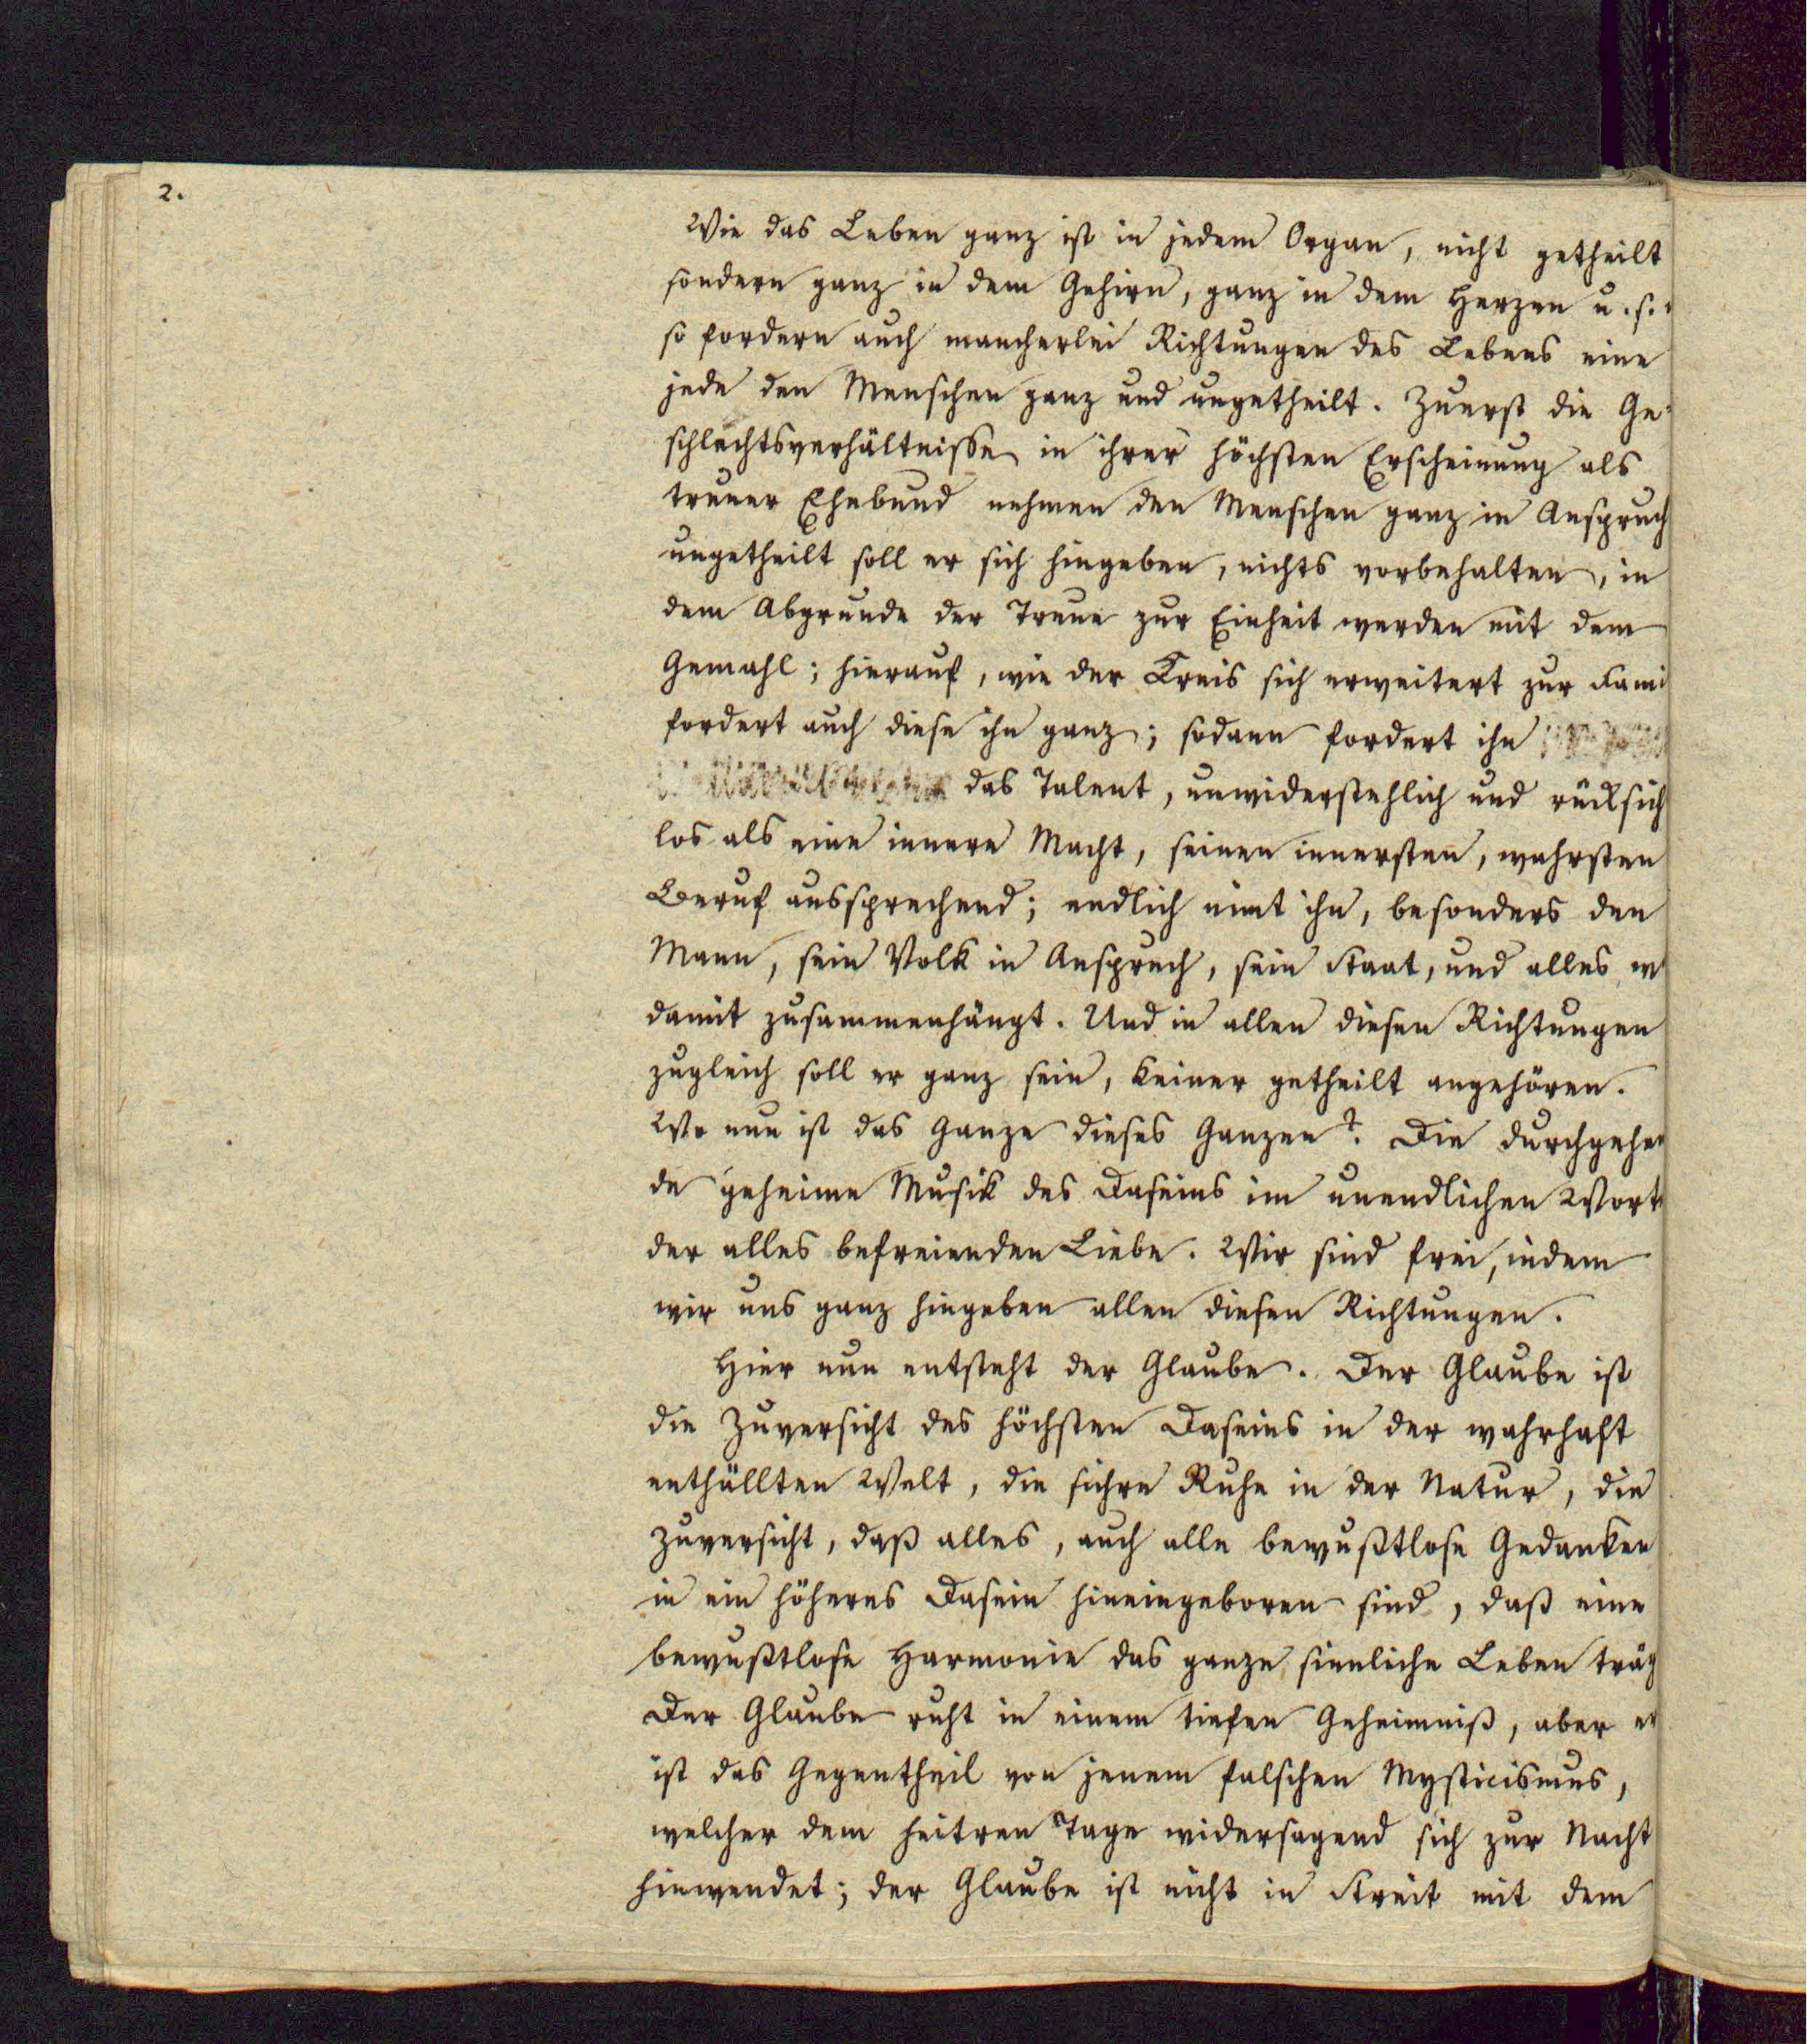 2.
Wie das Leben ganz ist in jedem Organ, nicht getheilt
sondern ganz in dem Gehirn, ganz in dem Herzen u. s.
so fordern auch mancherlei Richtungen des Lebens eine
jede den Menschen ganz und ungetheilt. Zuerst die Ge-
schlechtsverhältnisse in ihrer höchsten Erscheinung als
treuer Ehebund nehmen den Menschen ganz in Anspruch
ungetheilt soll er sich hingeben, nichts vorbehalten, in
dem Abgrunde der Treue zur Einheit werden mit dem
Gemahl; hierauf, wie der Kreis sich erweitert zur Fami
fordert auch diese ihn ganz; sodann fordert ihn
das Talent, unwiderstehlich und rücksich
los als eine innere Macht, seinen innersten, wahrsten
Beruf aussprechend; endlich nimt ihn, besonders den
Mann, sein Volk in Anspruch, sein Staat, und alles w
damit zusammenhängt. Und in allen diesen Richtungen
zugleich soll er ganz sein, keiner getheilt angehören.
Wo nun ist das Ganze dieses Ganzen? Die durchgehen
de geheime Musik des Daseins im unendlichen Worte
der alles befreienden Liebe. Wir sind frei, indem
wir uns ganz hingeben allen diesen Richtungen.
Hier nun entsteht der Glaube. Der Glaube ist
die Zuversicht des höchsten Daseins in der wahrhaft
enthüllten Welt, die sichre Ruhe in der Natur, die
Zuversicht, daß alles, auch alle bewußtlose Gedanken
in ein höheres Dasein hineingeboren sind, daß eine
bewußtlose Harmonie das ganze sinnliche Leben träg
Der Glaube ruht in einem tiefen Geheimniß, aber er
ist das Gegentheil von jenem falschen Mysticismus,
welcher dem heitren Tage widersagend sich zur Nacht
hinwendet; der Glaube ist nicht in Streit mit dem